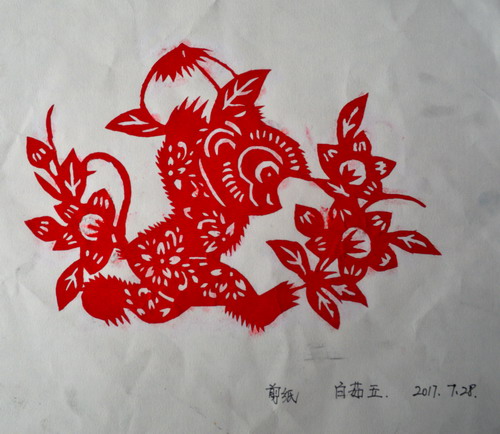 剪纸 白茹五. 2017.7.28.